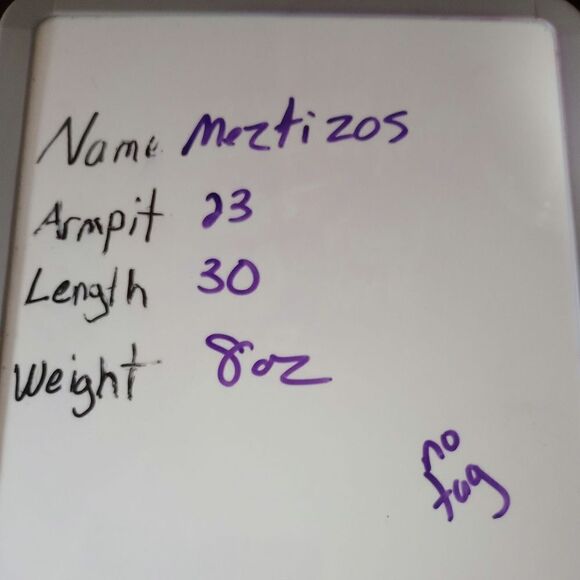 Name Meztizos
Armpit 23
Length 30
Weight 8oz
no
tag